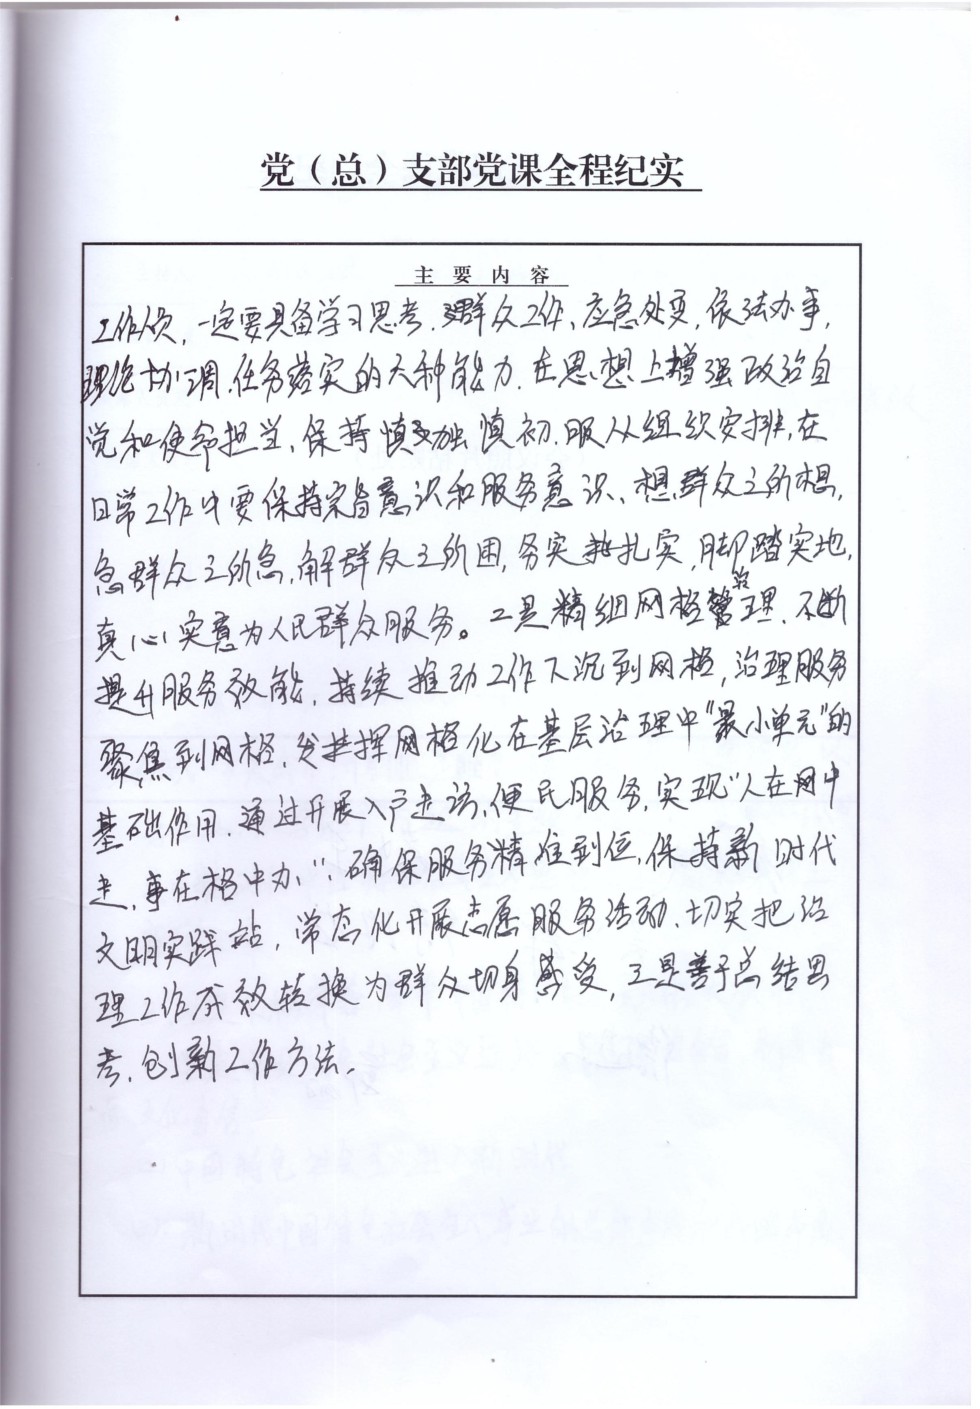 党（总）支部党课全程纪实
主要内容
工作人员，一定要具备学习思考、群众工作、应急处突、依法办事，
理论协调、任务落实的六种能力。在思想上增强政治自
觉和使命担当，保持慎独慎初，服从组织安排，在
日常工作中要保持宗旨意识和服务意识、想群众之所想，
急群众之所急，解群众之所困，务实扎实，脚踏实地，
真心实意为人民群众服务。二是精细网格治理，不断
提升服务效能，持续推动工作下沉到网格，治理服务
聚焦到网格，发挥网格化在基层治理中“最小单元”的
基础作用，通过开展入户走访、便民服务，实现“人在网中
走，事在格中办”，确保服务精准到位，保持新时代
文明实践站，常态化开展志愿服务活动、切实把治
理工作成效转换为群众切身感受，三是善于总结思
考，创新工作方法。